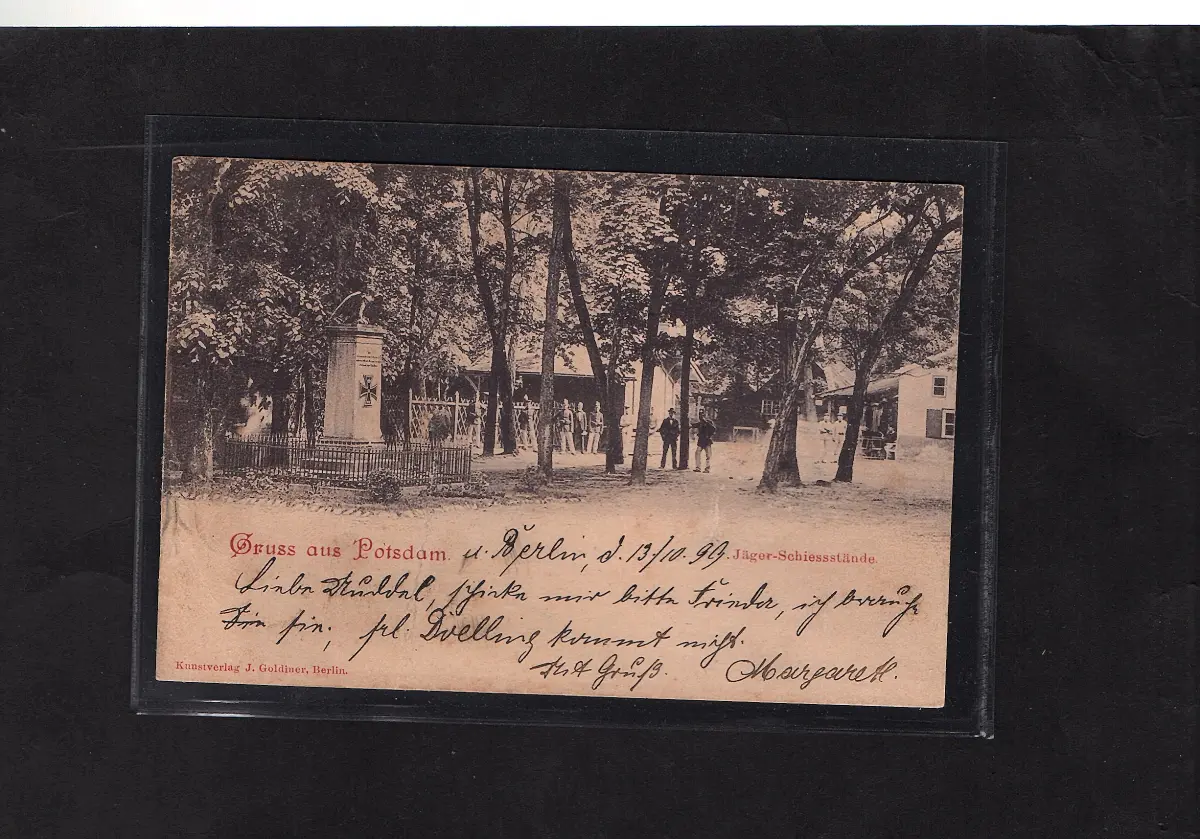 Gruss aus Potsdam. u. Berlin, d. 13/10.99. Jäger-Schiessstände.
Liebe Muddel, schicke mir bitte Frieda, ich brauche
sie, frl. Dölling kommt nicht.
Mit Gruß. Margarete.
Kunstverlag J. Goldiner, Berlin.